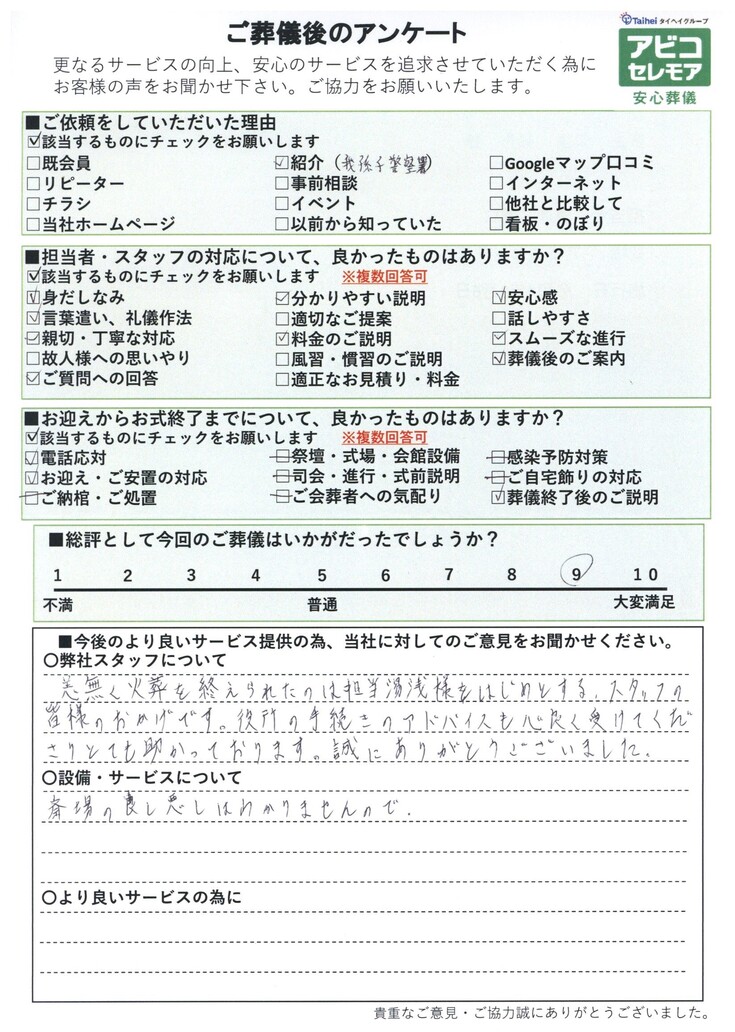 Taihei タイヘイグループ
アビコ
セレモア
安心葬儀
ご葬儀後のアンケート
更なるサービスの向上、安心のサービスを追求させていただく為に
お客様の声をお聞かせ下さい。ご協力をお願いいたします。
■ご依頼をしていただいた理由
☑該当するものにチェックをお願いします
□既会員 ☑紹介（我孫子警察署） □Googleマップ口コミ
□リピーター □事前相談 □インターネット
□チラシ □イベント □他社と比較して
□当社ホームページ □以前から知っていた □看板・のぼり
■担当者・スタッフの対応について、良かったものはありますか？
☑該当するものにチェックをお願いします ※複数回答可
☑身だしなみ ☑分かりやすい説明 ☑安心感
☑言葉遣い、礼儀作法 □適切なご提案 □話しやすさ
☑親切・丁寧な対応 ☑料金のご説明 ☑スムーズな進行
□故人様への思いやり □風習・慣習のご説明 ☑葬儀後のご案内
☑ご質問への回答 □適正なお見積り・料金
■お迎えからお式終了までについて、良かったものはありますか？
☑該当するものにチェックをお願いします ※複数回答可
☑電話応対 □祭壇・式場・会館設備 □感染予防対策
☑お迎え・ご安置の対応 □司会・進行・式前説明 □ご自宅飾りの対応
□ご納棺・ご処置 □ご会葬者への気配り ☑葬儀終了後のご説明
■総評として今回のご葬儀はいかがだったでしょうか？
1 2 3 4 5 6 7 8 9 10
不満 普通 大変満足
■今後のより良いサービス提供の為、当社に対してのご意見をお聞かせください。
〇弊社スタッフについて
恙無く火葬を終えられたのは担当湯浅様をはじめとする、スタッフの
皆様のおかげです。役所の手続きのアドバイスも心良く受けてくだ
さりとても助かっております。誠にありがとうございました。
〇設備・サービスについて
斎場の良し悪しはわかりませんので。
〇より良いサービスの為に
貴重なご意見・ご協力誠にありがとうございました。